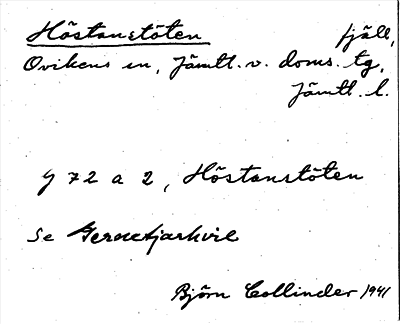 Höstanstöten fjäll,
Ovikens sn, Jämtl. v. doms. tg,
Jämtl. l.
y 72 a 2, Höstanstöten
Se
Björn Collinder 1941